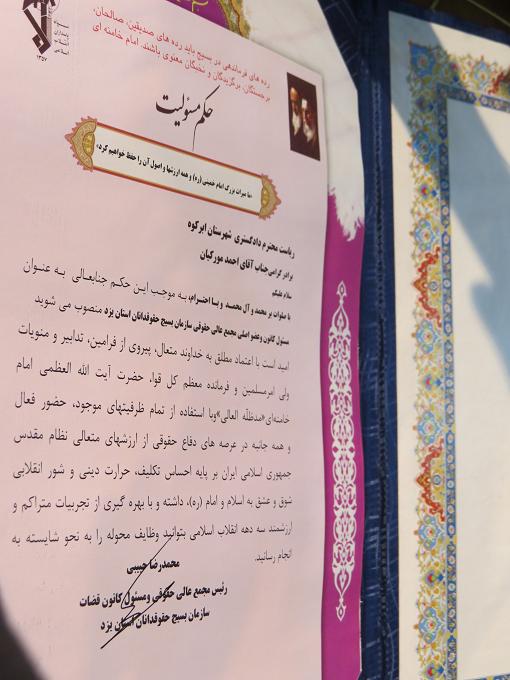 رده های فرماندهی در بسیج باید رده های صدیقین، صالحان،
برجستگان، برگزیدگان و نخبگان معنوی باشند. امام خامنه ای
سپاه
پاسداران
انقلاب
اسلامی
۱۳۵۷
حکم مسئولیت
«ما میراث بزرگ امام خمینی (ره) و همه ارزشها و اصول آن را حفظ خواهیم کرد»
ریاست محترم دادگستری شهرستان ابرکوه
برادر گرامی جناب آقای احمد مورکیان
سلام علیکم
با صلوات بر محمد و آل محمد و با احترام، به موجب این حکم جنابعالی به عنوان
مسئول کانون و عضو اصلی مجمع عالی حقوقی سازمان بسیج حقوقدانان استان یزد منصوب می شوید
امید است با اعتماد مطلق به خداوند متعال، پیروی از فرامین، تدابیر و منویات
ولی امرمسلمین و فرمانده معظم کل قوا، حضرت آیت الله العظمی امام
خامنه‌ای«مدظله العالی»وبا استفاده از تمام ظرفیتهای موجود، حضور فعال
و همه جانبه در عرصه های دفاع حقوقی از ارزشهای متعالی نظام مقدس
جمهوری اسلامی ایران بر پایه احساس تکلیف، حرارت دینی و شور انقلابی
شوق و عشق به اسلام و امام (ره)، داشته و با بهره گیری از تجربیات متراکم و
ارزشمند سه دهه انقلاب اسلامی بتوانید وظایف محوله را به نحو شایسته به
انجام رسانید.
محمدرضا حبیبی
رئیس مجمع عالی حقوقی ومسئول کانون قضات
سازمان بسیج حقوقدانان استان یزد